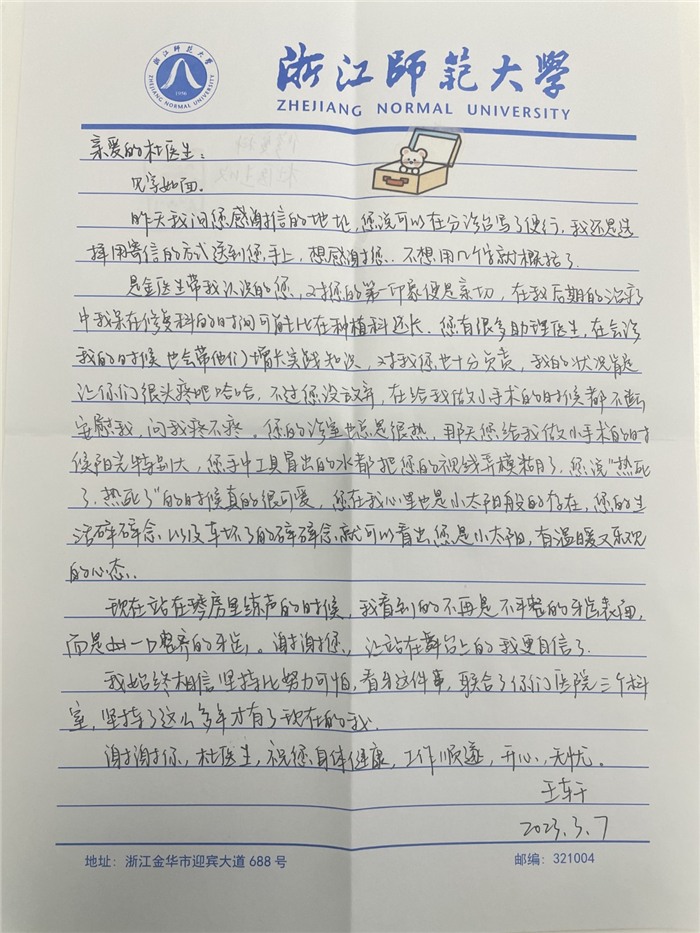 浙江师范大学
ZHEJIANG NORMAL UNIVERSITY
1956
浙江師範大學
ZHEJIANG NORMAL UNIVERSITY
亲爱的杜医生:
见字如面.
昨天我问您感谢信的地址,您说可以在分诊台写了便行,我还是选
择用寄信的方式送到您手上,想感谢您.不想用几个字就概括了.
是金医生带我认识的您,对您的第一印象便是亲切,在我后期的治疗
中我呆在修复科的时间可能比在种植科还长.您有很多助理医生,在会诊
我的时候也会带他们增长实践知识,对我您也十分负责,我的状况肯定
让你们很头疼吧哈哈,不过您没放弃,在给我做小手术的时候都不断
安慰我,问我疼不疼.您的诊室也总是很热,那天您给我做小手术的时
候阳光特别大,您手中工具冒出的水都把您的视线弄模糊了,您说"热死
了,热死了"的时候真的很可爱,您在我心里也是小太阳般的存在,您的生
活碎碎念以及车坏了的碎碎念就可以看出您是小太阳,有温暖又乐观
的心态.
现在站在琴房里练声的时候,我看到的不再是不平整的牙齿表面,
而是一口整齐的牙齿.谢谢您,让站在舞台上的我更自信了.
我始终相信坚持比努力可怕,看牙这件事,联合了你们医院三个科
室,坚持了这么多年才有了现在的我.
谢谢你,杜医生,祝您身体健康,工作顺遂,开心,无忧.
2023.3.7
地址:浙江金华市迎宾大道 688 号
邮编:321004